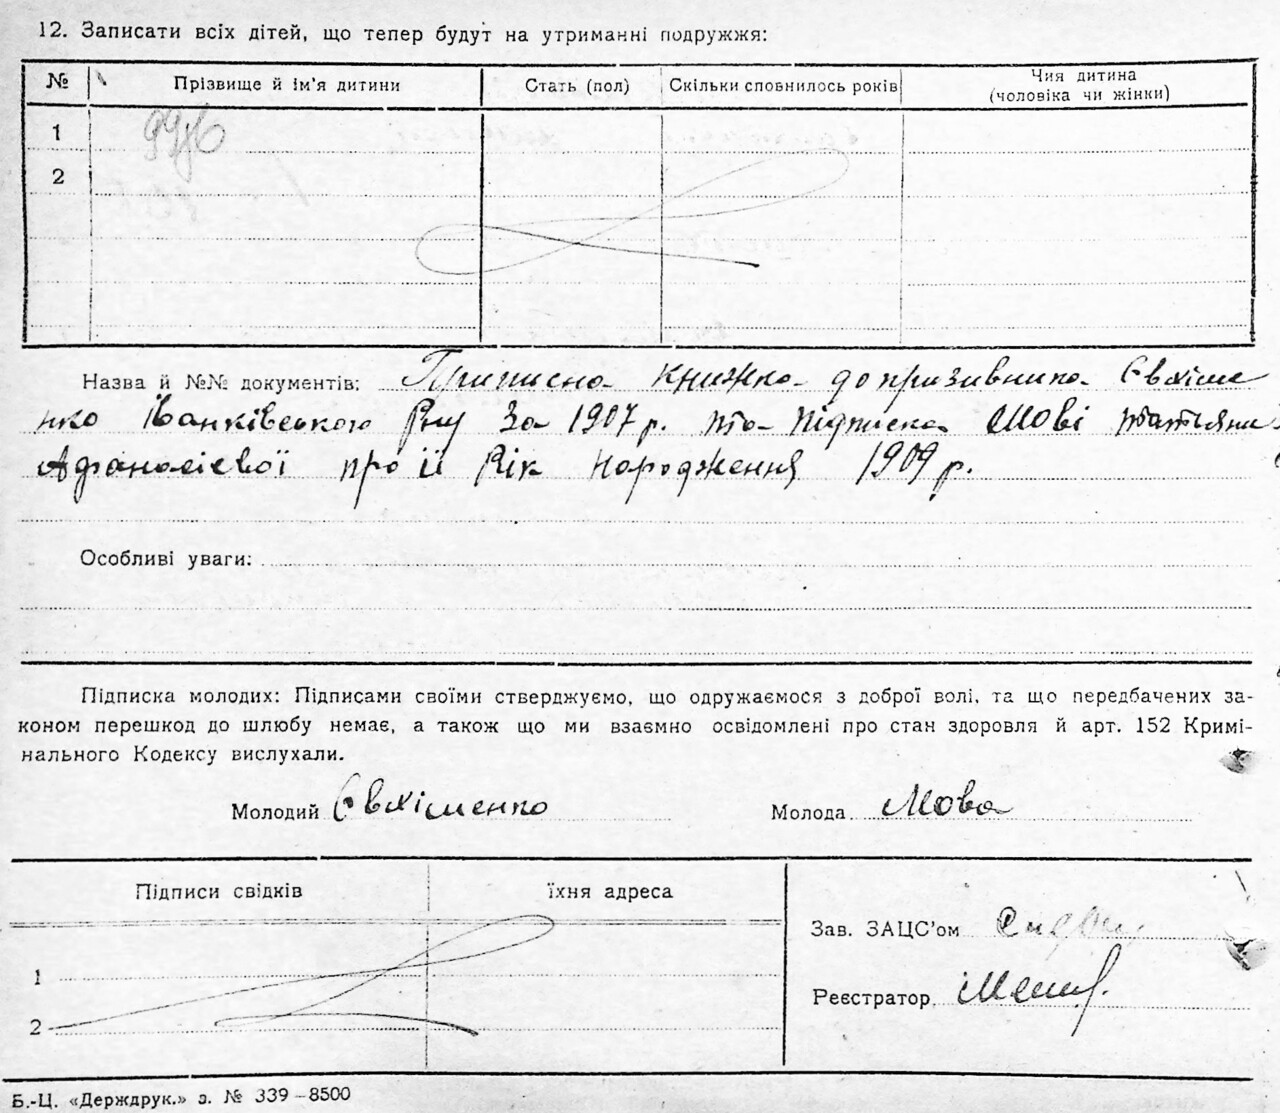 12. Записати всіх дітей, що тепер будут на утриманні подружжя:
№ Прізвище й ім'я дитини Стать (пол) Скільки сповнилось років Чия дитина
(чоловіка чи жінки)
1
2
Назва й №№ документів: Приписна книжка допризивника Євхіме
нко Іванківською Рву за 1907 р. та підписка Мові Татьяни
Афанасієвої про її рік народження 1909 р.
Особливі уваги:
Підписка молодих: Підписами своїми стверджуємо, що одружаємося з доброї волі, та що передбачених за-
коном перешкод до шлюбу немає, а також що ми взаємно освідомлені про стан здоровля й арт. 152 Кримі-
нального Кодексу вислухали.
Молодий Євхіменко Молода Мова
Підписи свідків Їхня адреса
Зав. ЗАЦС'ом
1
Реєстратор
2
Б.-Ц. «Держдрук.» з. № 339–8500